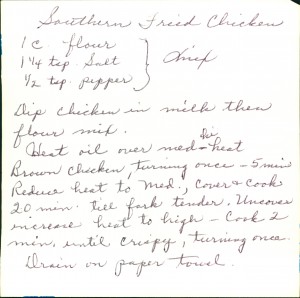 Southern Fried Chicken
1 c. flour
1 1/4 tsp. Salt
1/2 tsp. pepper
} mix
Dip chicken in milk then
flour mix.
Heat oil over med-hi heat
Brown Chicken, turning once - 5 min
Reduce heat to Med., Cover & Cook
20 min. till fork tender. Uncover
increase heat to high - Cook 2
min. until crispy, turning once.
Drain on paper towel.